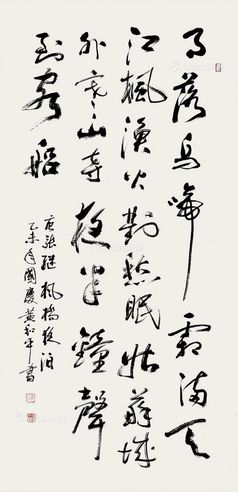 月落烏啼霜滿天
江楓漁火對愁眠姑蘇城
外寒山寺夜半鐘聲
到客船
唐張繼楓橋夜泊
乙未年國慶黃和平書